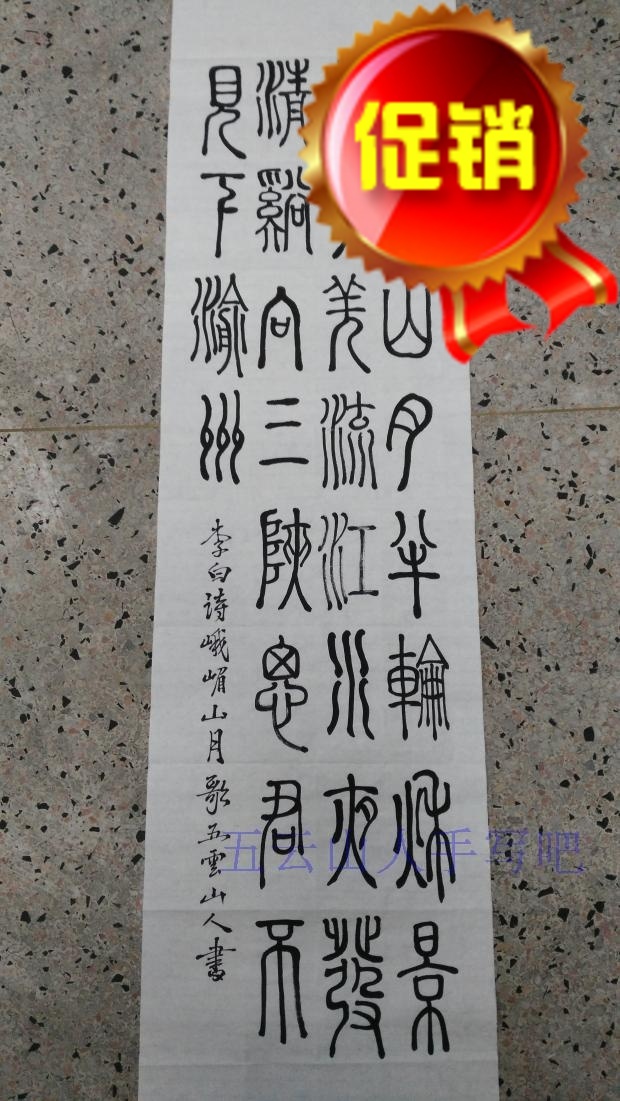 促销
山月半輪秋景
羌流江水夜發
清谿向三陜思君不
見下渝州
李白詩峨嵋山月歌五雲山人書
五云山人手写吧